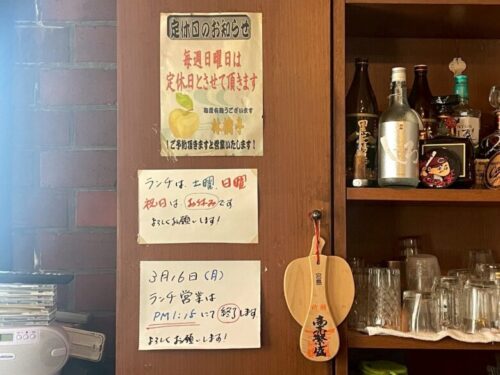 定休日のお知らせ
毎週日曜日は
定休日とさせて頂きます
毎度有難うございます
!ご予約頂きますと営業いたします!
ランチは、土曜、日曜
祝日は お休みです
よろしくお願いします!
3月16日(月)
ランチ営業は
PM1:15にて終了します
よろしくお願いします!